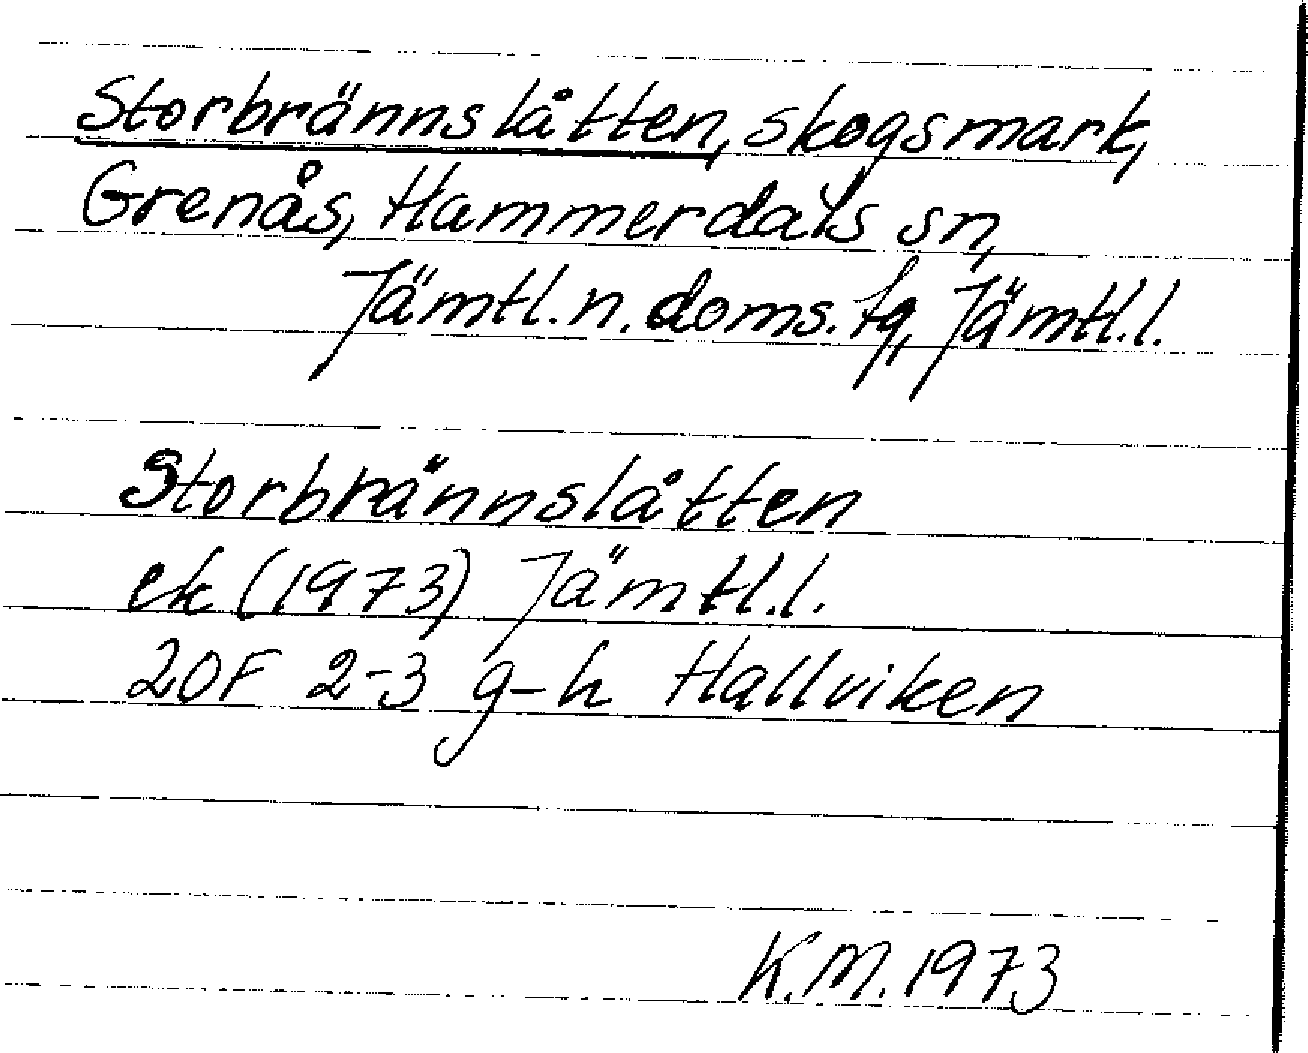 Storbrännslåtten, skogsmark,
Grenås, Hammerdals sn,
Jämtl.n.doms.fg, Jämtl.l.
Storbrännslåtten
ek (1973) Jämtl.l.
20F 2-3 g-h Hallviken
K.M.1973